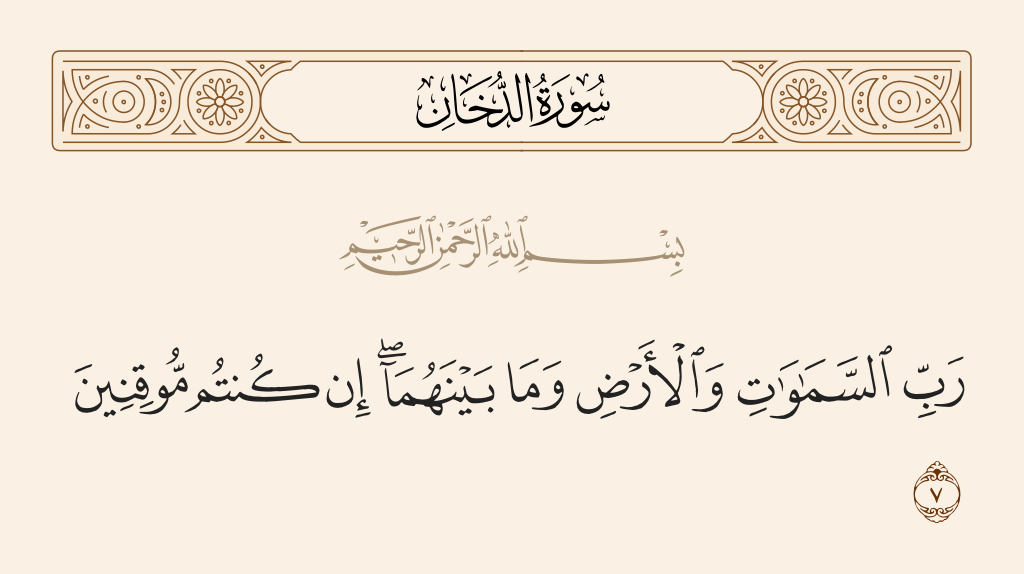 سُورَةُ الدُّخَانِ
بِسْمِ ٱللَّهِ ٱلرَّحْمَٰنِ ٱلرَّحِيمِ
رَبِّ ٱلسَّمَـٰوَٰتِ وَٱلْأَرْضِ وَمَا بَيْنَهُمَآ ۖ إِن كُنتُم مُّوقِنِينَ
٧